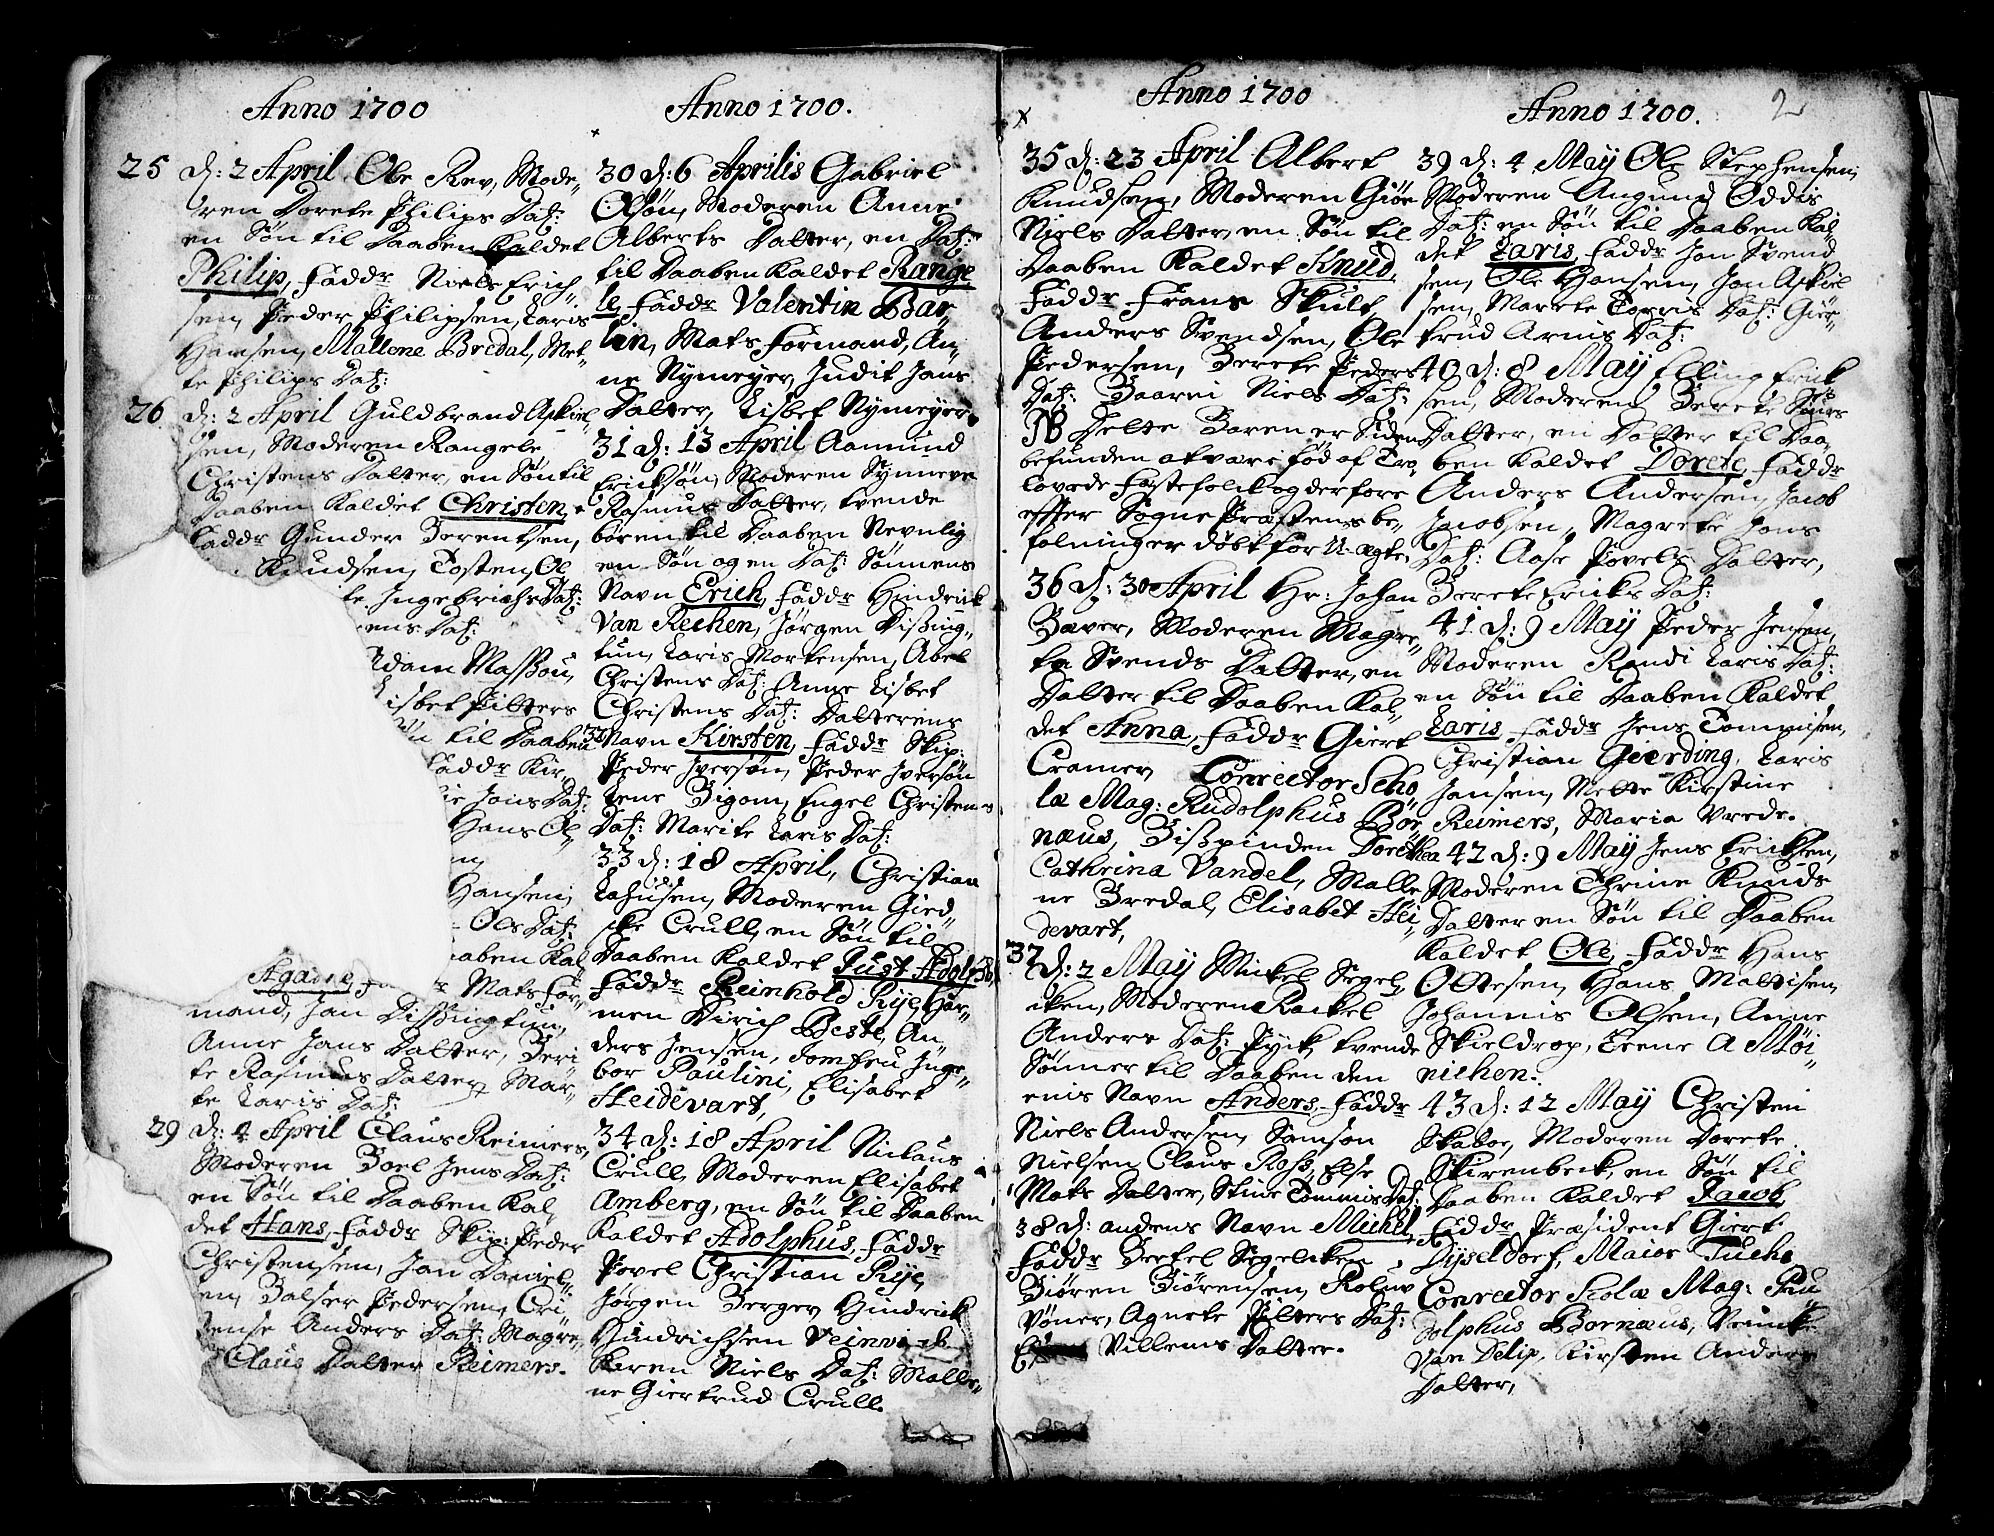 Anno 1700
25 d: 2 April Ole Rev, Mode„
ren Dorete Philips Dat:
en Søn til Daaben Kaldet
Philip, Faddr Niels Erich„
sen, Peder Philipsen, Laris
Hansen, Mallene Bredal, Met„
te Philips Dat:
26 d: 2 April Guldbrand Askiel„
sen, Moderen Rangele
Christens Datter, en Søn til
Daaben Kaldet Christen,
Faddr Gunder Berentsen,
Knudsen, Tosten Ol
te Ingebrichs Dat:
ens Dat:
Adam Massou,
Lisbet Pitters
Søn til Daaben
Faddr Kir„
ie Jons Dat:
Hans Ol„
en,
Hansen,
Ols Dat:
aaben Kal„
Agat
Mats For„
mand, Jan Dissingtun,
Anne Jans Datter, Beri
te Rasmus Datter Mar„
te Laris Dat:
29 d: 4 April Claus Reimers,
Moderen Boel Jens Dat:
en Søn til Daaben Kal„
det Hans, Faddr Skip: Peder
Christensen, Jan Daniel„
en, Balser Pedersen, Cri
tense Anders Dat: Magre„
Claus Datter Reimers.
Anno 1700.
30 d: 6 Aprilis Gabriel
Olsøn, Moderen Anne
Alberts Datter, en Dat:
til Daaben Kaldet Range
le, Faddr Valentin Bar„
lin, Mats Formand, An„
ne Nymeyer, Judit Jans
Datter, Lisbet Nymeyers
31 d: 13 April Aamund
Ericksøn, Moderen Synneve
Rasmus Datter, tvende
børen til Daaben Nevnlig
en Søn og en Dat: Sønnens
Navn Erich, Faddr Hindrick
Van Rechen, Jørgen Dissing„
tun, Laris Mortensen, Abel
Christens Dat: Anne Lisbet
Christens Dat: Datterens
32 Navn Kirsten, Faddr Skip:
Peder Iversøn, Peder Iversøn
Lene Bigom, Engel Christens
Dat: Marite Laris Dat:
33 d: 18 April, Christian
Lahusen, Moderen Gied„
ske Crull, en Søn til
Daaben Kaldet Just Adolph,
Faddr Reinhold Rije, Har„
men Dirich Beste, An„
ders Jensen, Jomfru Inge„
bor Paulini, Elisabet
Heidevart,
34 d: 18 April Niclaus
Crull, Moderen Elisabet
Amberg, en Søn til Daaben
Kaldet Adolphus, Faddr
Povel Christian Rije,
Jørgen Berger, Hindrick
Hindrichsen Veinv
Karen Niels Dat: Malle„
ne Giertrud Crull.
Anno 1700
35 d: 23 April Albert
Knudsen, Moderen Giør
Niels Datter, en Søn til
Daaben Kaldet Knud,
Faddr Frans Skult,
Anders Svendsen, Ole
Pedersen, Berete Peders
Dat: Baarni Niels Dat:
NB Dette Baren er siden
befunden at være fød af Tro„
lovede Festefolck og derfore
effter Sogne Præstens be„
falninger døbt for U-ægte,
36 d: 30 April Hr: Johan
Baver, Moderen Magre„
ta Svends Datter, en
Datter til Daaben Kal„
det Anna, Faddr Giert
Cramer, Conrector Scho„
læ Mag: Rudolphus Bor„
næus, Bisspinden Dorethea
Cathrina Vandel, Malle
ne Bredal, Elisabet Hei„
devart,
37 d: 2 May Mickel Segel„
cken, Moderen Rackel
Anders Dat: Pyck, tvende
Sønner til Daaben den
enis Navn Anders, Faddr
Niels Andersen, Samson
Nielsen, Claus Ross, Else
Mats Datter, Stine Tommis Dat:
38 d: andens Navn Michel,
Faddr Bertel Segelcken
Biøren Biørensen, Roluv
Vøner, Agnete Pitters Dat:
Villems Datter.
Anno 1700.
2
39 d: 4 May Ole Stephensen,
Moderen Angund Oddis
Dat: en Søn til Daaben Kal„
det Laris, Faddr Jon Svend
sen, Ole Hansen, Jon Askiel
sen, Marete Torris Dat: Gier„
trud Arnis Dat:
40 d: 8 May Elling Erick
sen, Moderen Berete Siurs
Datter, en Datter til Daa„
ben Kaldet Dorete, Faddr
Anders Andersen, Jacob
Jacobsen, Magrete Jons
Dat: Aase Povels Datter,
Berete Ericks Dat:
41 d: 9 May Peder Jensen,
Moderen Randi Laris Dat:
en Søn til Daaben Kaldet
Laris, Faddr Jens Tommisen,
Christian Geerding, Laris
Jansen, Mette Kirstine
Reimers, Maria Vrede.
42 d: 9 May Jens Ericksen,
Moderen Thrine Knuds
Datter en Søn til Daaben
Kaldet Ole, Faddr Hans
Ottesen, Hans Mattisen,
Johannis Olsen, Anne
Skieldrop, Trene A Møi„
nichen.
43 d: 12 May Christen
Skaboe, Moderen Dorete
Skirenbeck, en Søn til
Daaben Kaldet Jacob,
Faddr Præsident Giert
Dijseldorf, Maior Tuchs
Conrector Scolæ Mag: Ru
dolphus Bornæus, Reinike
Van Delip, Kirsten Anders
Datter,